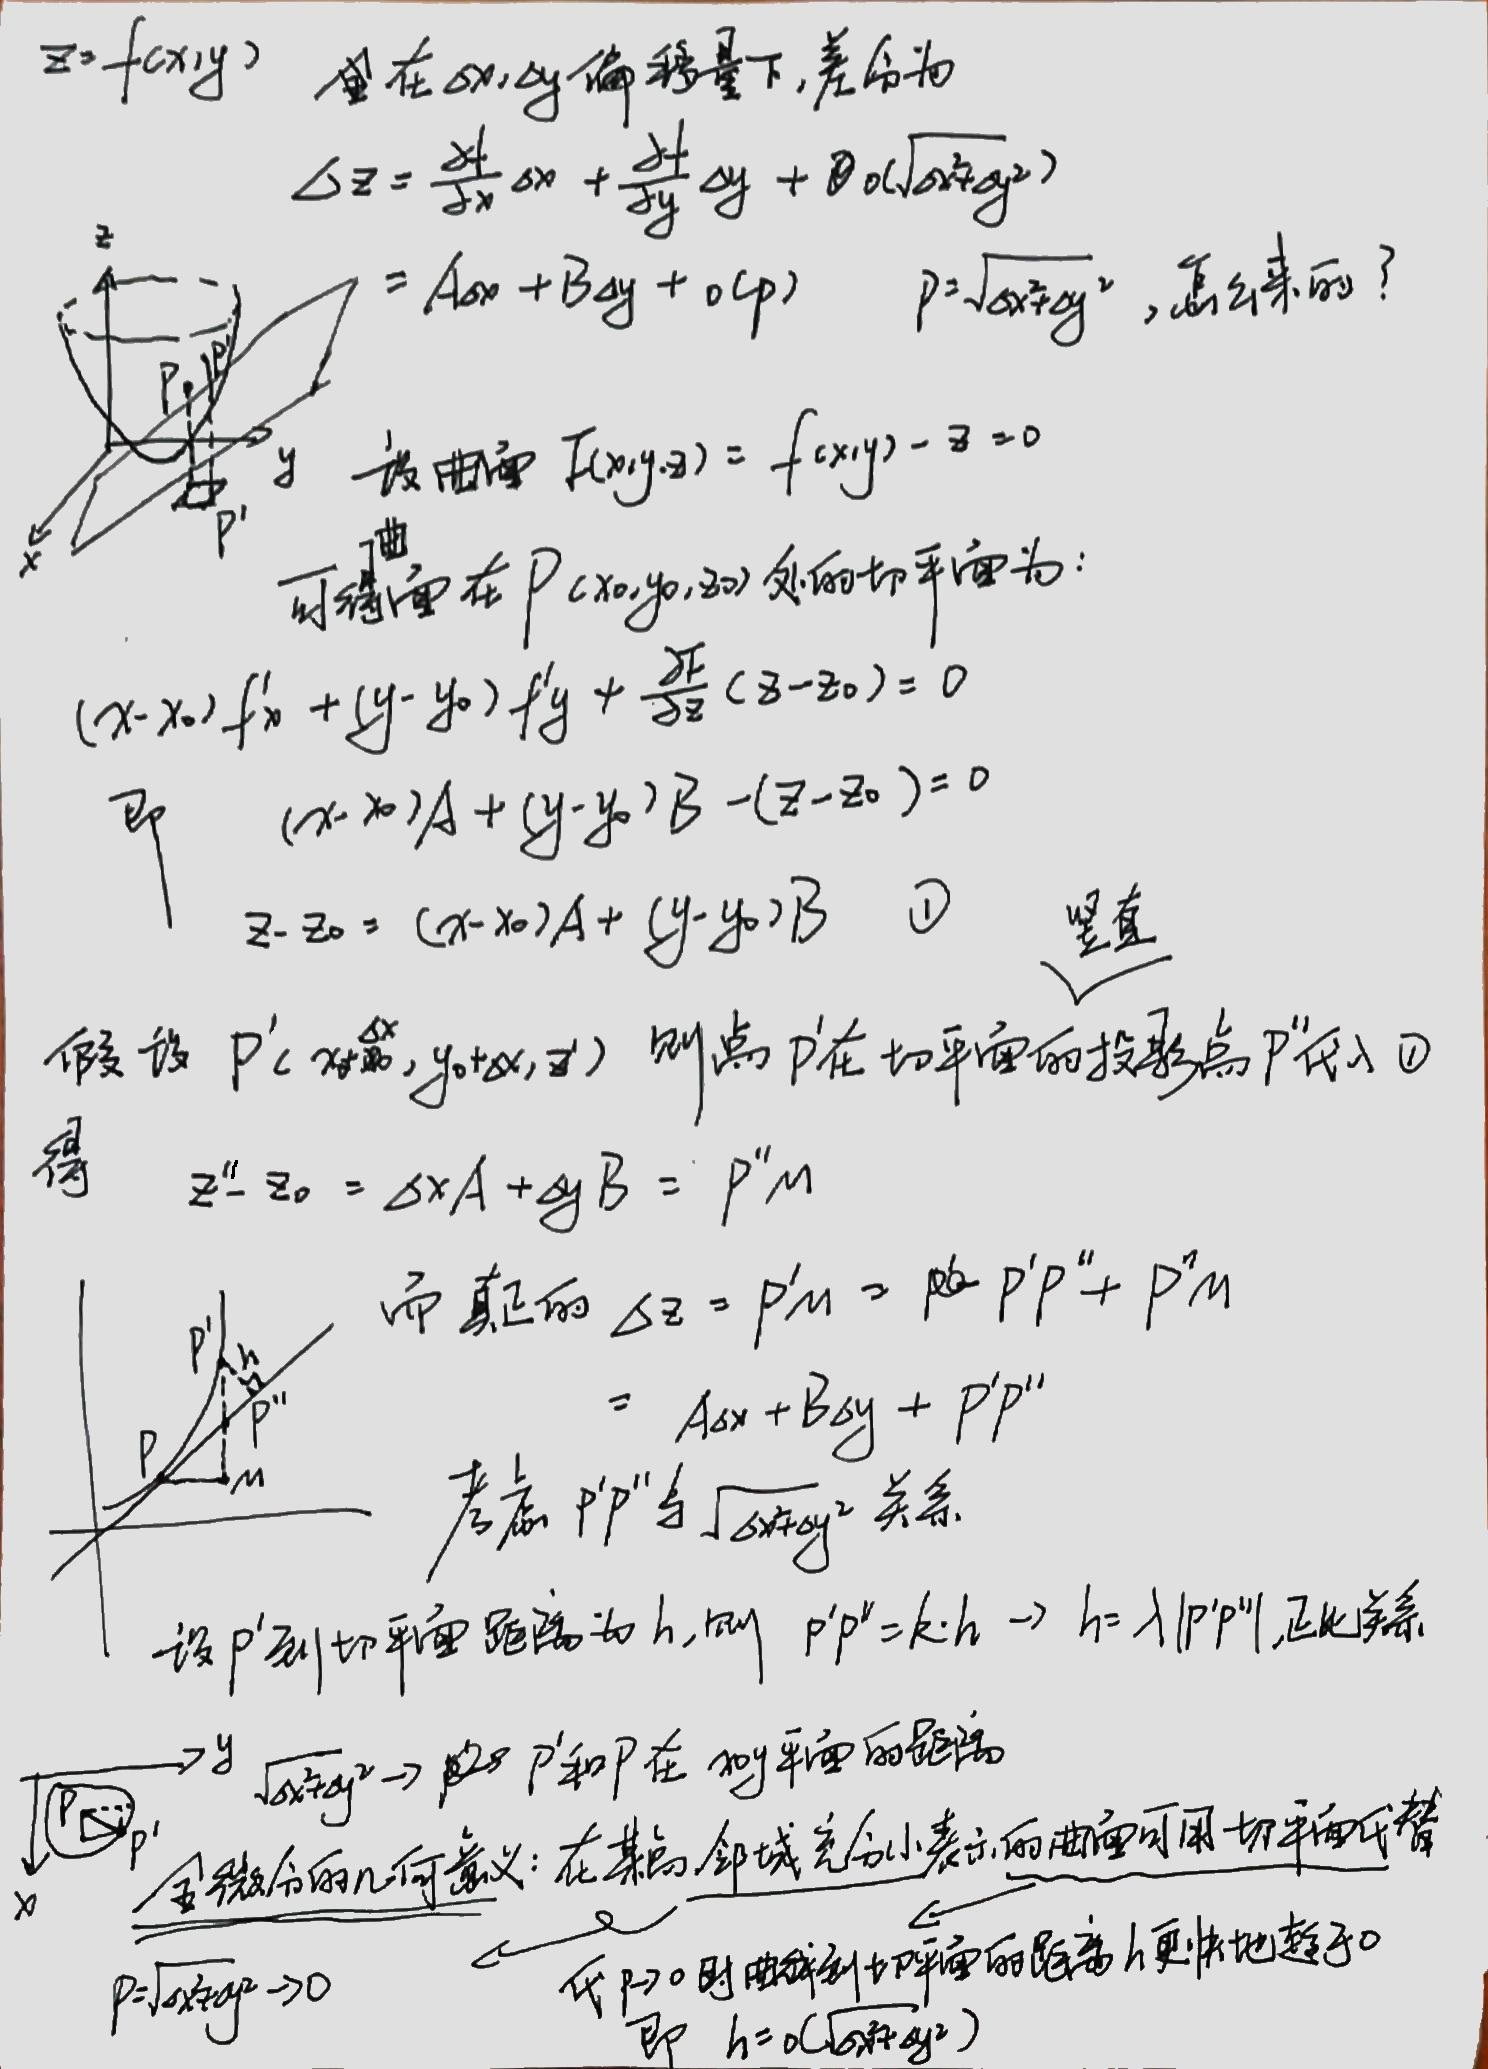 z=f(x,y) 在Δx,Δy偏移量下,差分为
Δz = ∂f/∂x Δx + ∂f/∂y Δy + o(√Δx²+Δy²)
= AΔx + BΔy + o(ρ) ρ=√Δx²+Δy² ,怎么来的?
z
P P'
y
x
P'
设曲面 F(x,y,z) = f(x,y) - z = 0
可得曲面在 P(x₀,y₀,z₀)处的切平面为:
(x-x₀)f'x + (y-y₀)f'y + ∂F/∂z (z-z₀) = 0
即 (x-x₀)A + (y-y₀)B -(z-z₀) = 0
z-z₀ = (x-x₀)A + (y-y₀)B ①
竖直
假设 P'(x₀+Δx, y₀+Δx, z') 则点P'在切平面的投影点P''代入①
得 z''-z₀ = ΔxA + ΔyB = P''M
而真正的 Δz = P'M = P'P'' + P''M
= AΔx + BΔy + P'P''
P'
h
P''
P
M
考虑 P'P''与√Δx²+Δy² 关系.
设P'到切平面距离为h,则 P'P''=k·h → h=λ|P'P''|,正比关系
√Δx²+Δy² → P'和P在xoy平面的距离
y
P
P'
x
全微分的几何意义:在某点邻域充分小表示的曲面可用切平面代替
ρ=√Δx²+Δy² → 0
代ρ→0时曲线到切平面的距离h更快地趋于0
即 h=o(√Δx²+Δy²)